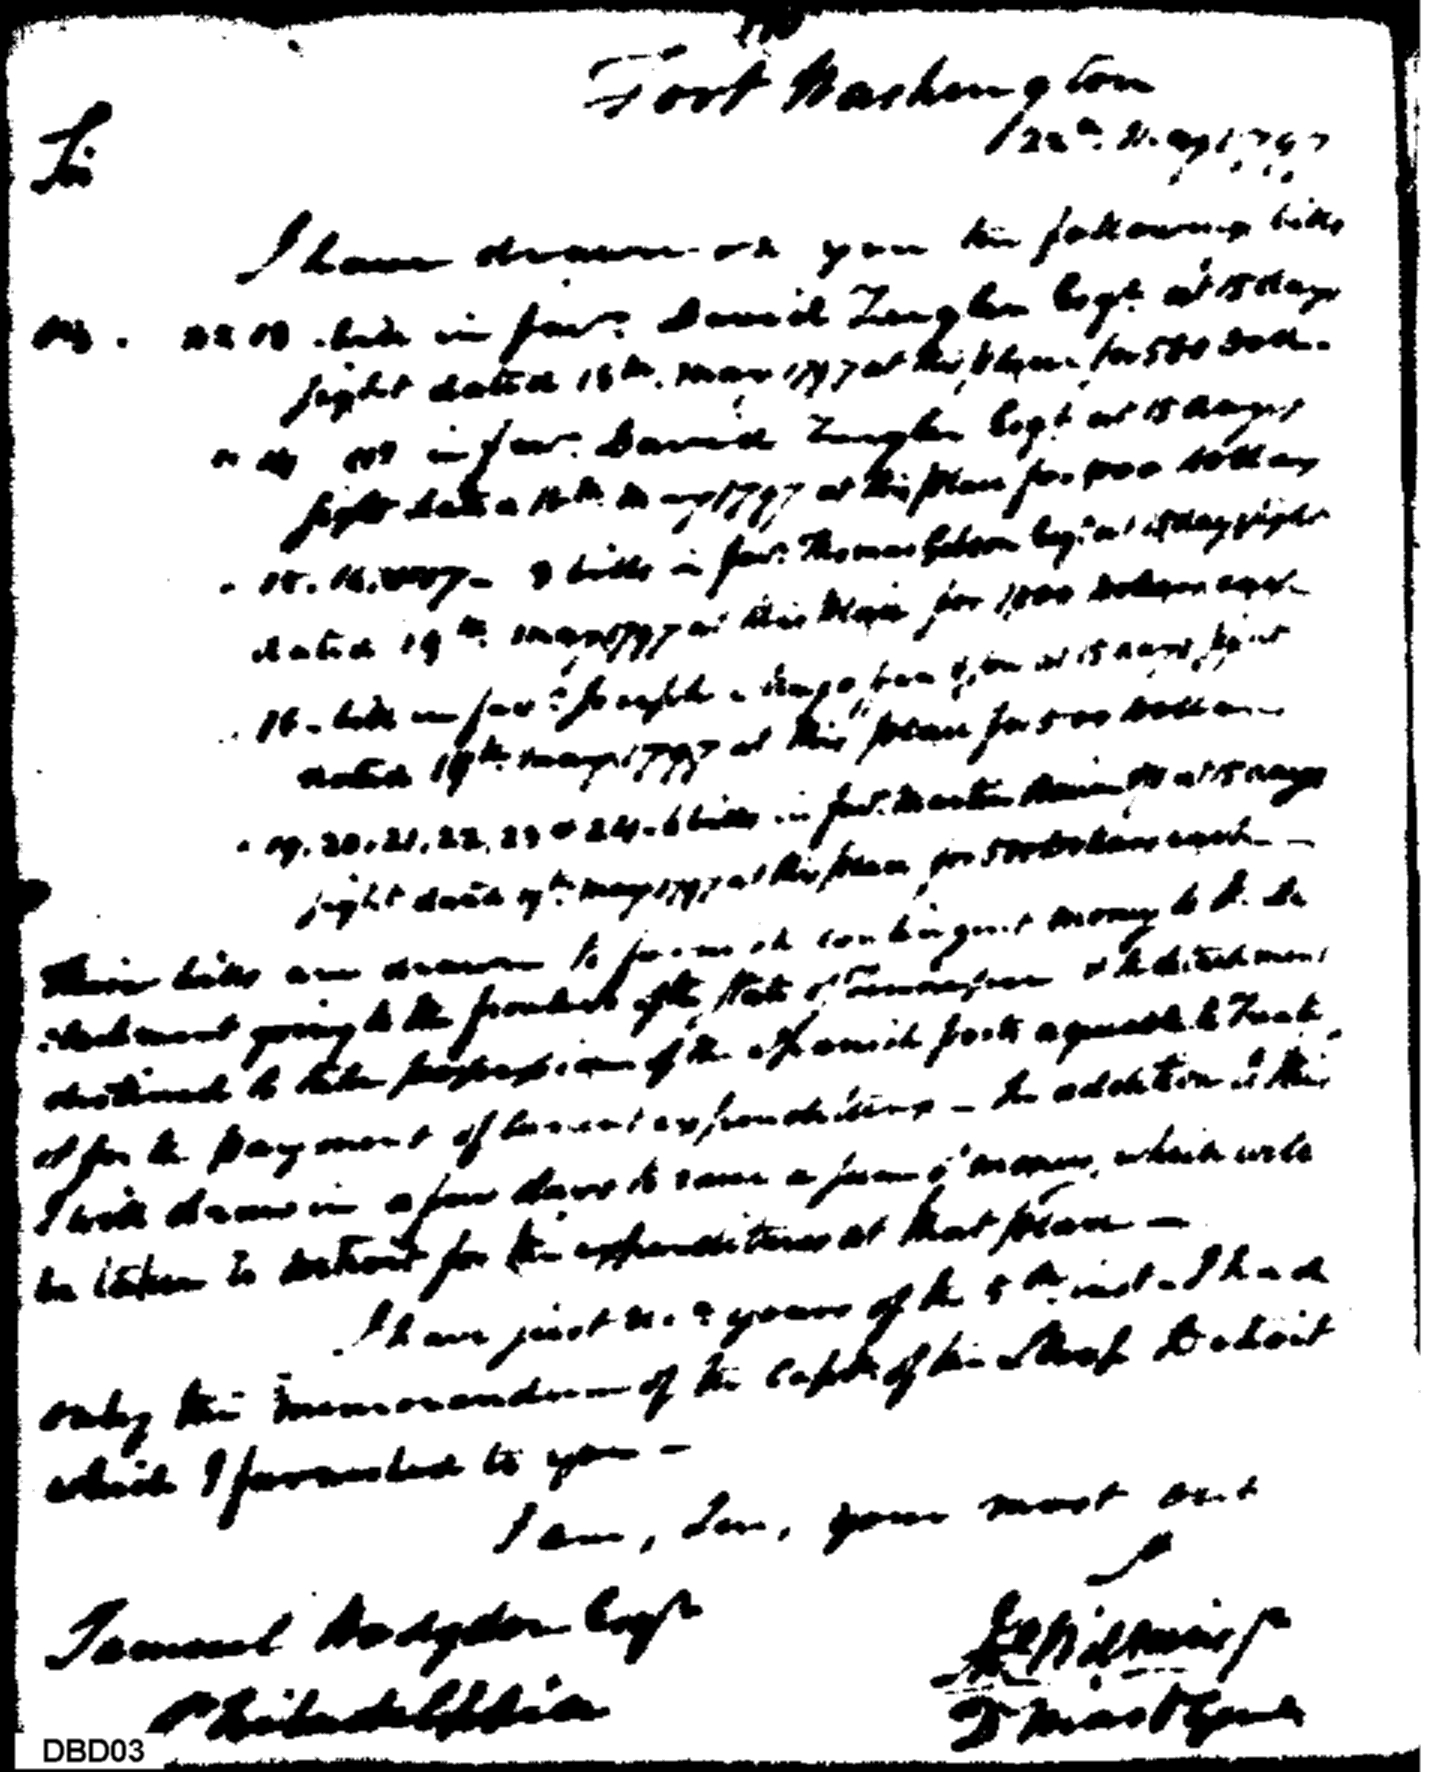 Fort Washington
22d. May 1797
Sir
I have drawn on you the following bills
bill in favr. David Zeigler Esqr. at 15 days
sight dated 18th. May 1797 at this place for 500 Doll.
in favr. David Zeigler Esqt. at 15 days
sight dated May 1797 at this place for 1000 dollars
15. 16. & 17 - 3 bills in favr. Thomas Gibson Esqr. at 15 days sight
dated 19th. May 1797 at this place for 1000 dollars each
18. bill in favr. Joseph at 15 days sight
dated 19th. May 1797 at this place for 500 dollars
19. 20. 21. 22. 23 & 24. 6 bills in favr. Martin at 15 days
sight dated 19th. May 1797 at this place for 500 dollars each
These bills are drawn to furnish contingent money to the De
tachment going to the frontiers of the State of Tennessee & the detachment
destined to take possession of the Spanish posts agreeable to Treaty
& for the payment of current expenditures - In addition to this
I will draw in a few days to raise a sum of money, which will
be taken to Detroit for the expenditures at that place -
I have just recd. yours of the 5th. inst. I had
only the memorandum of the Captn. of the Sloop Detroit
which I forwarded to you -
I am, Sir, your most obt
Samuel Hodgdon Esqr
Philadelphia
DBD03